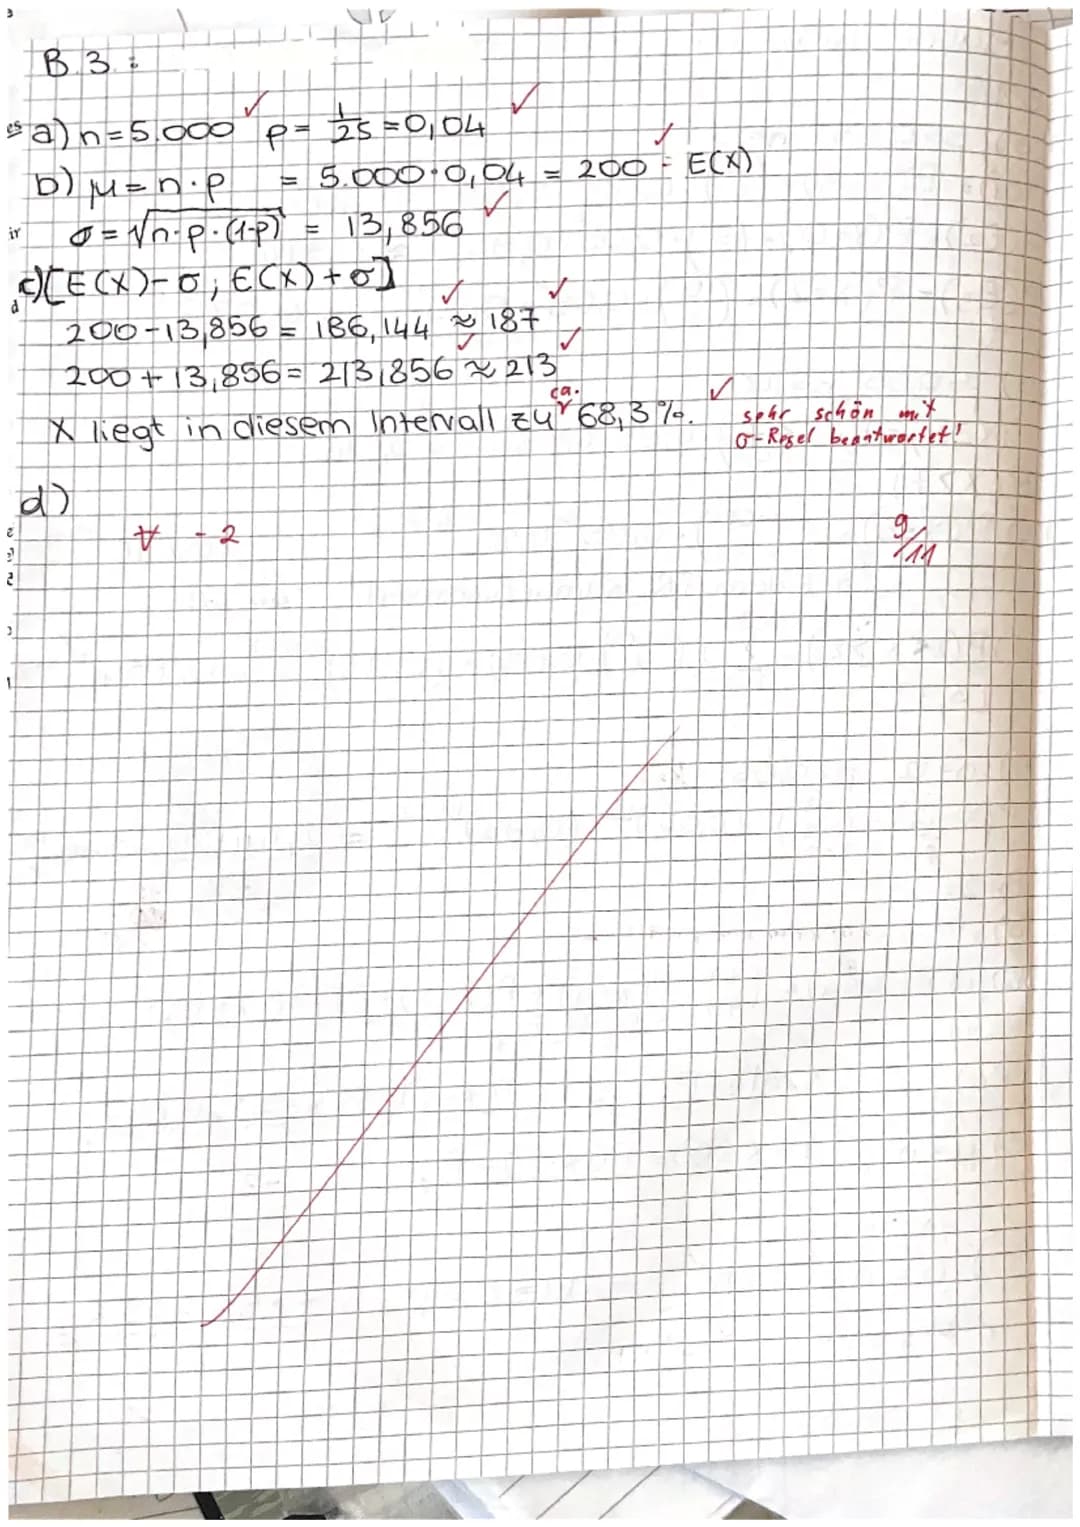 B.3.:
a) n=5.000 ✓ p= 1/25 =0,04 ✓
b) μ=n·p = 5.000·0,04 = 200 = E(X) ✓
σ=√n·p·(1-p) = 13,856 ✓
c)[E(X)-σ; E(X)+σ]
200-13,856= 186,144 ✓ ≈ 187 ✓
200+13,856= 213,856 ✓ ≈ 213 ✓
ca.
X liegt in diesem Intervall zu 68,3%. ✓ sehr schön mit
σ-Regel beantwortet!
d)
∀ -2
9/11